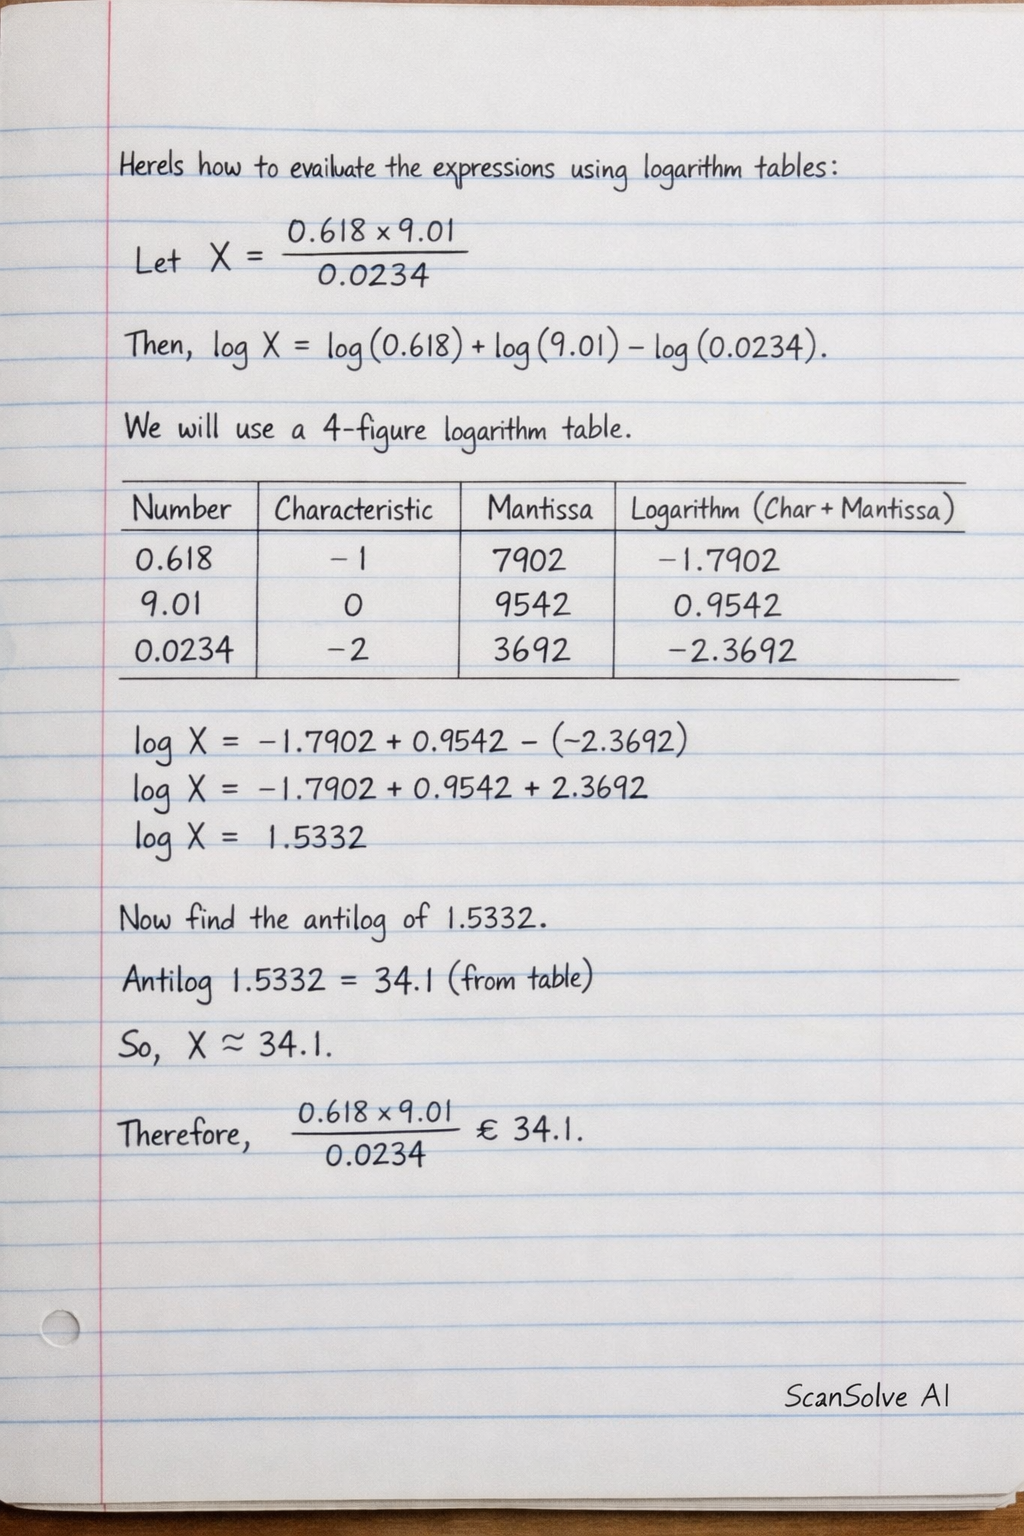 Herels how to evailuate the expressions using logarithm tables:
Let X = 0.618 × 9.01
0.0234
Then, log X = log (0.618) + log (9.01) − log (0.0234).
We will use a 4-figure logarithm table.
Number Characteristic Mantissa Logarithm (Char + Mantissa)
0.618 −1 7902 −1.7902
9.01 0 9542 0.9542
0.0234 −2 3692 −2.3692
log X = −1.7902 + 0.9542 − (−2.3692)
log X = −1.7902 + 0.9542 + 2.3692
log X = 1.5332
Now find the antilog of 1.5332.
Antilog 1.5332 = 34.1 (from table)
So, X ≈ 34.1.
Therefore, 0.618 × 9.01 € 34.1.
0.0234
ScanSolve AI